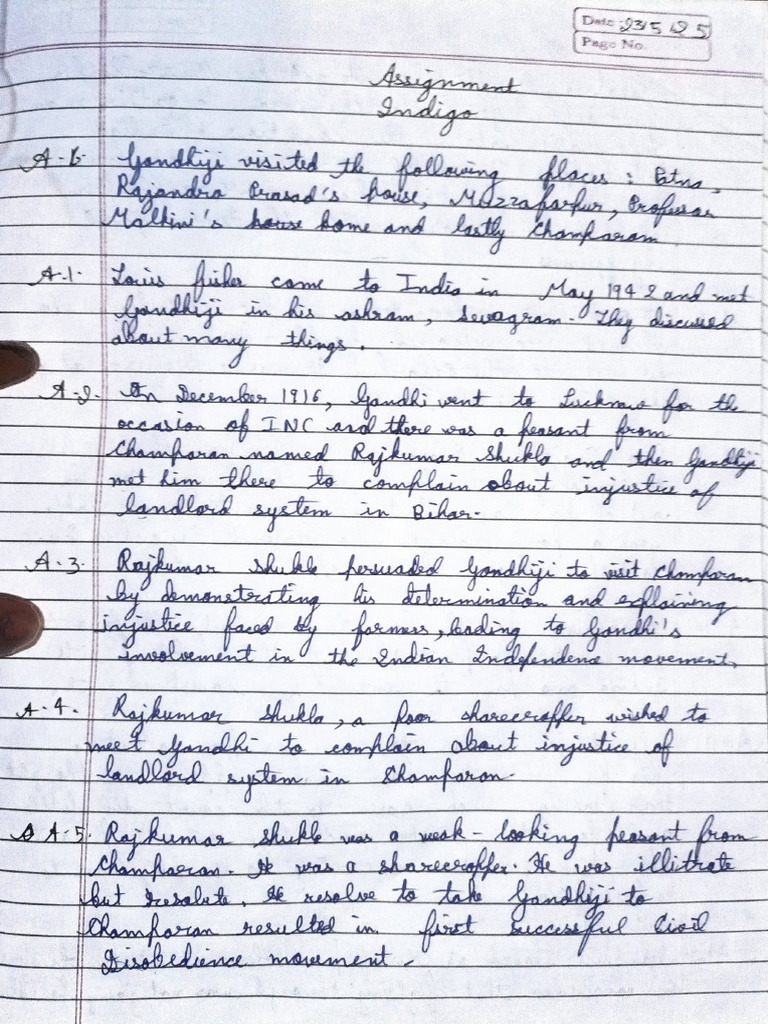 Date: 23/5/25
Page No.
Assignment
Indigo
A-6. Gandhiji visited the following places : Patna,
Rajandra Prasad's house, Muzzafarpur, Professor
Malkini's house home and lastly Champaran
A-1. Louis fisher came to India in May 1942 and met
Gandhiji in his ashram, Sevagram. They discussed
about many things.
A-2. In December 1916, Gandhi went to Lucknow for the
occasion of INC and there was a peasant from
Champaran named Rajkumar Shukla and then Gandhiji
met him there to complain about injustice of
landlord system in Bihar.
A-3. Rajkumar Shukla persuaded Gandhiji to visit Champaran
by demonstrating his determination and explaining
injustice faced by farmers, leading to Gandhi's
involvement in the Indian Independence movement.
A-4. Rajkumar Shukla, a poor sharecropper wished to
meet Gandhi to complain about injustice of
landlord system in Champaran.
A-5. Rajkumar Shukla was a weak-looking peasant from
Champaran. He was a sharecropper. He was illitrate
but resolute. He resolve to take Gandhiji to
Champaran resulted in first successful Civil
Disobedience movement.